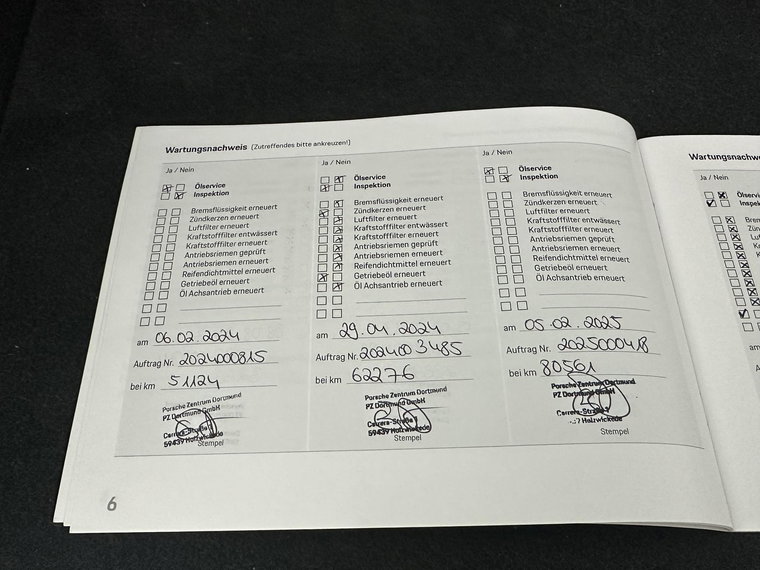 Wartungsnachweis (Zutreffendes bitte ankreuzen!)
Ja / Nein
Ölservice
Inspektion
Bremsflüssigkeit erneuert
Zündkerzen erneuert
Luftfilter erneuert
Kraftstofffilter entwässert
Kraftstofffilter erneuert
Antriebsriemen geprüft
Antriebsriemen erneuert
Reifendichtmittel erneuert
Getriebeöl erneuert
Öl Achsantrieb erneuert
am 06.02.2024
Auftrag Nr. 2024000815
bei km 51124
Porsche Zentrum Dortmund
PZ Dortmund GmbH
Carrera-Straße 1
59439 Holzwickede
Stempel
Ja / Nein
Ölservice
Inspektion
Bremsflüssigkeit erneuert
Zündkerzen erneuert
Luftfilter erneuert
Kraftstofffilter entwässert
Kraftstofffilter erneuert
Antriebsriemen geprüft
Antriebsriemen erneuert
Reifendichtmittel erneuert
Getriebeöl erneuert
Öl Achsantrieb erneuert
am 29.04.2024
Auftrag Nr. 2024003485
bei km 62276
Porsche Zentrum Dortmund
PZ Dortmund GmbH
Carrera-Straße 1
59439 Holzwickede
Stempel
Ja / Nein
Ölservice
Inspektion
Bremsflüssigkeit erneuert
Zündkerzen erneuert
Luftfilter erneuert
Kraftstofffilter entwässert
Kraftstofffilter erneuert
Antriebsriemen geprüft
Antriebsriemen erneuert
Reifendichtmittel erneuert
Getriebeöl erneuert
Öl Achsantrieb erneuert
am 05.02.2025
Auftrag Nr.
bei km 80561
Porsche Zentrum Dortmund
PZ Dortmund GmbH
Carrera-Straße 1
Holzwickede
Stempel
6
Wartungsnachwe
Ja / Nein
Ölservi
Inspek
Brem
Zün
Luf
K
am
A